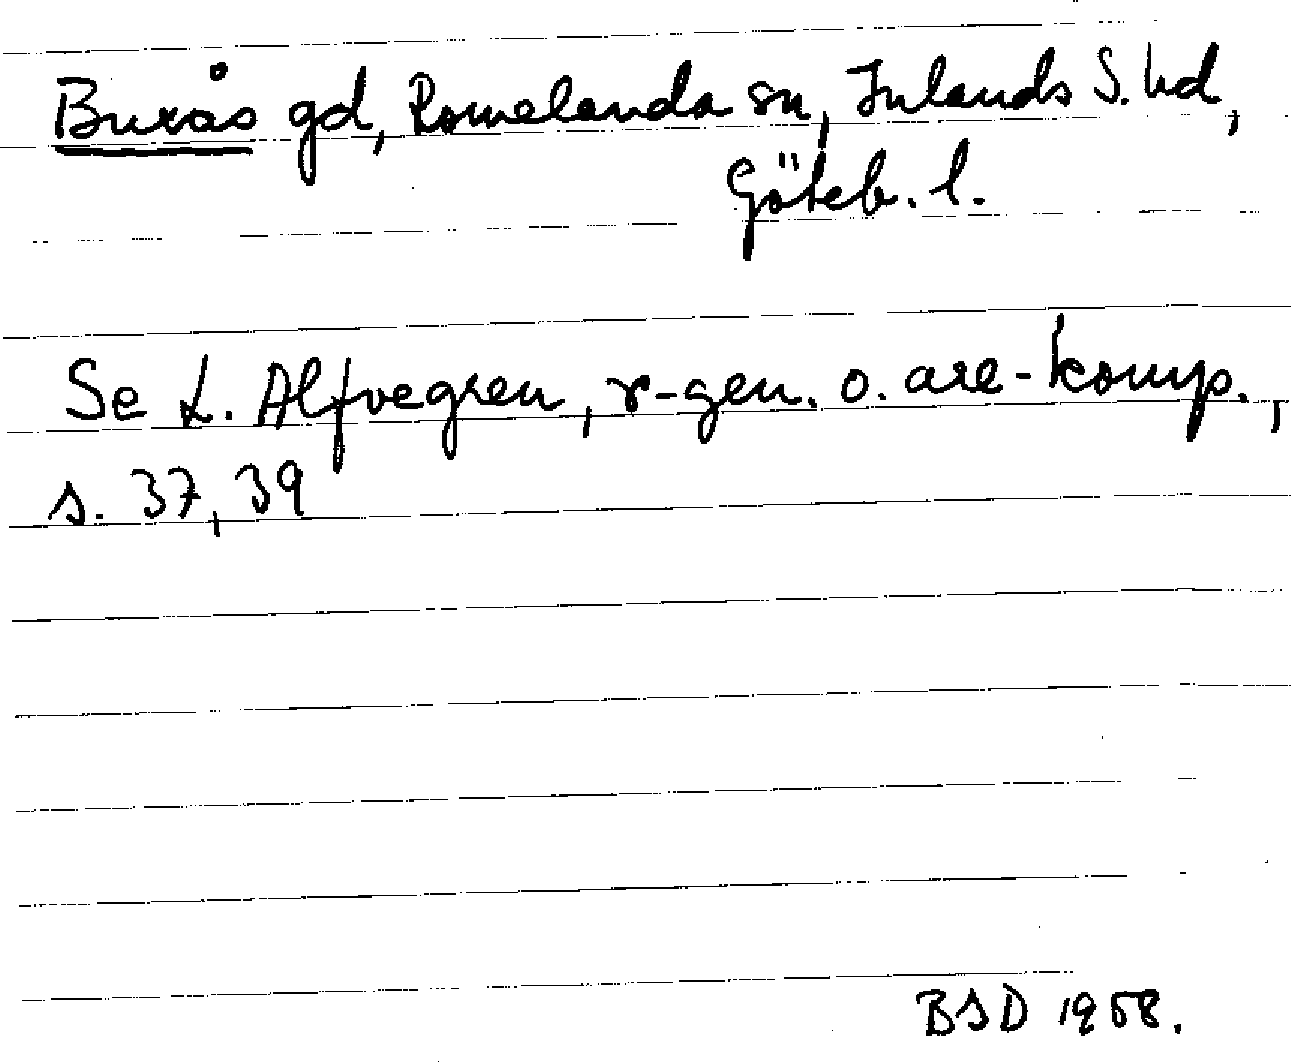 Burås gd, Romelanda sn, Inlands S. hd,
Göteb. l.
Se L. Alfvegren, r-gen. o. are-komp.,
s. 37, 39
BSD 1958.